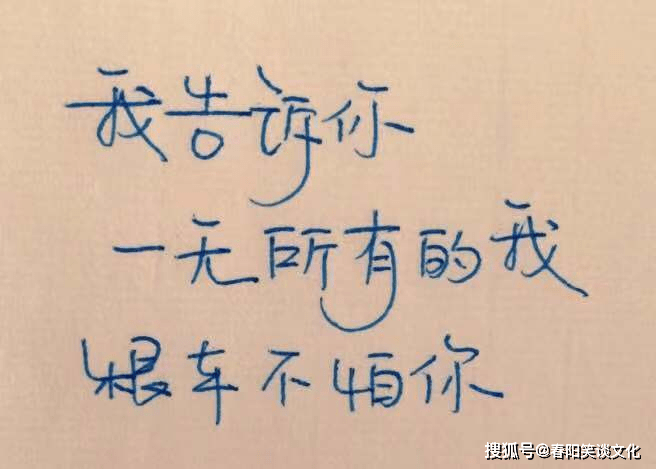 我告诉你
一无所有的我
根车不怕你
搜狐号@春阳笑谈文化